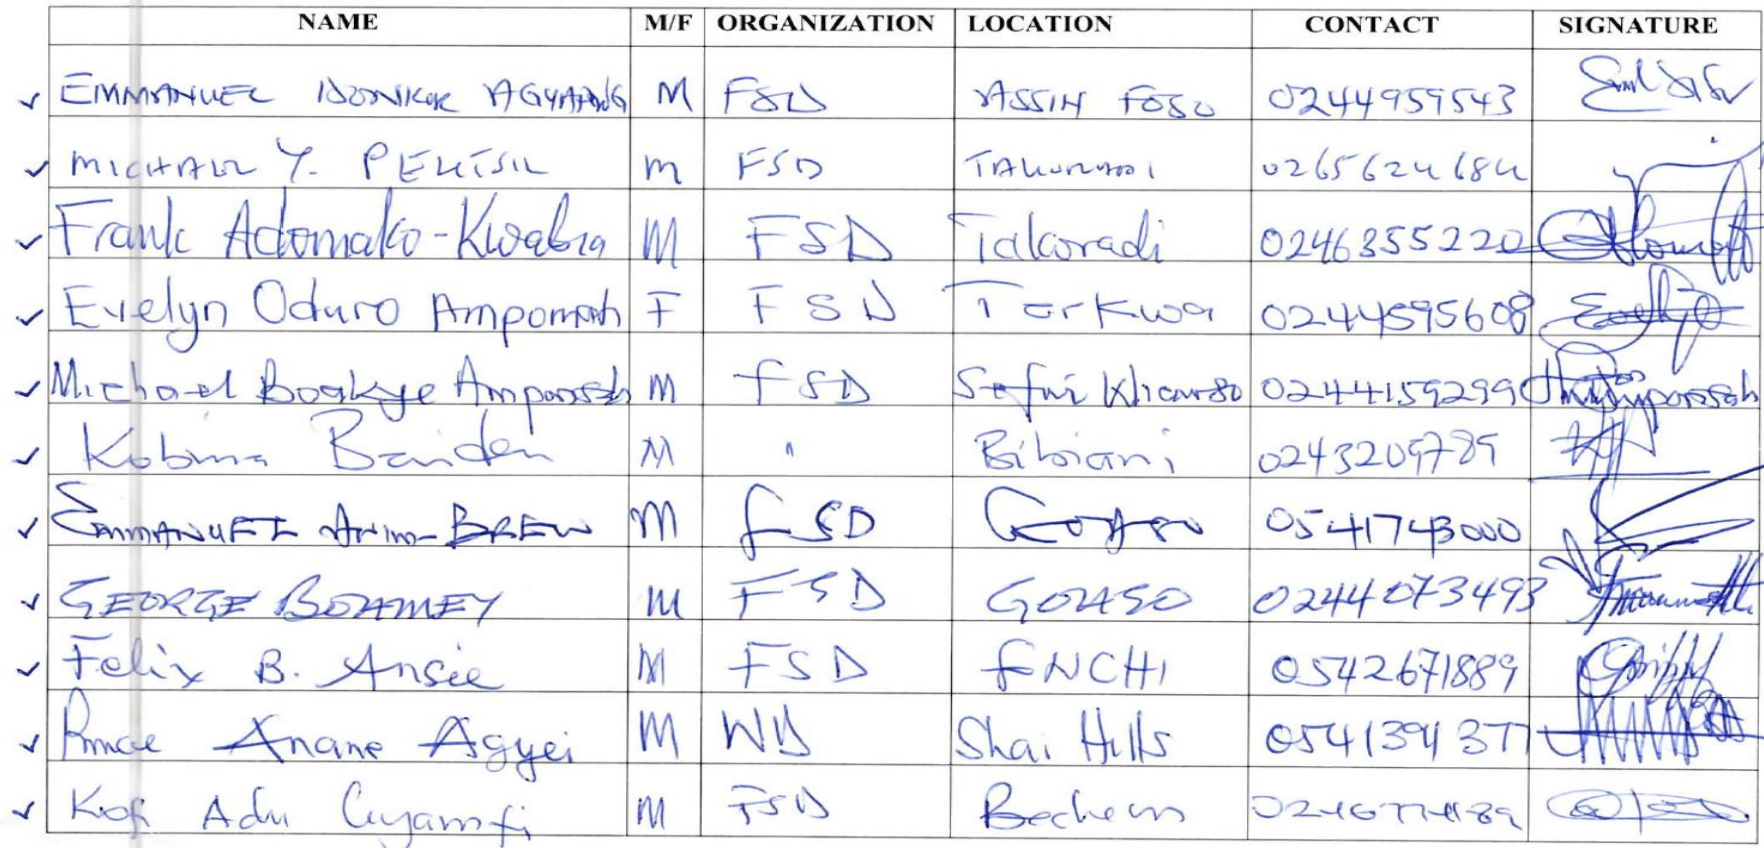 NAME M/F ORGANIZATION LOCATION CONTACT SIGNATURE
EMMANUEL AGYAPONG M FSD ASSIN FOSO 0244959543
MICHAEL Y. M FSD TAKORADI
Frank Adomako-Kwabia M FSD Takoradi 0246355220
Evelyn Oduro Ampomah F FSD Tarkwa 0244595608
Michael Boakye Amponsah M FSD Sefwi 0244159299 Amponsah
Kobina Baiden M " Bibiani 0243209789
EMMANUEL BREW M FSD Goaso 0541743000
GEORGE M FSD GOASO 0244073493
Felix B. Ansie M FSD ENCHI 0542671889
Anane Agyei M WD Shai Hills 0541394377
Kofi Adu Gyamfi M FSD Bechem